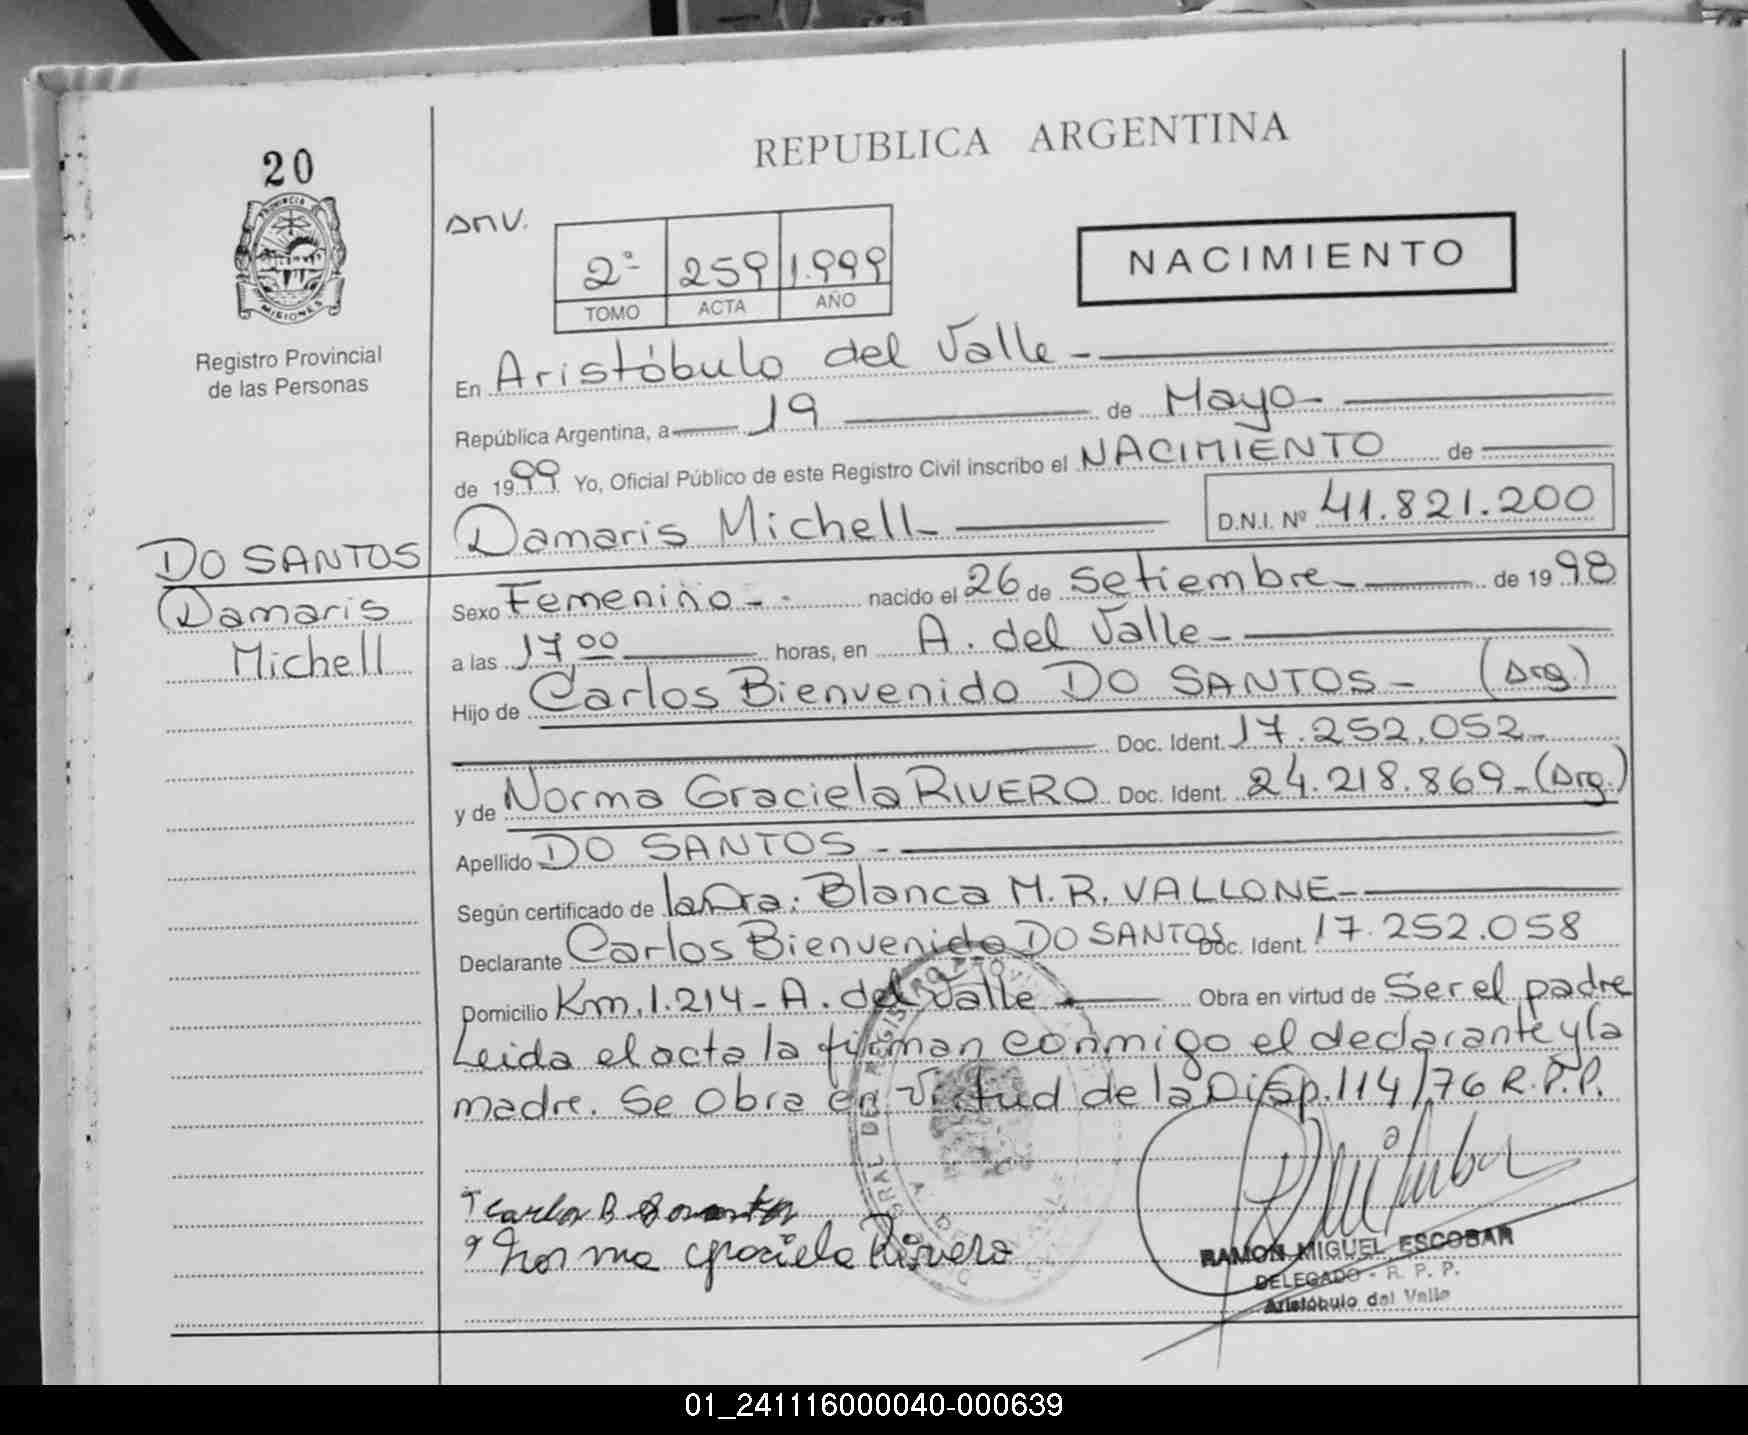 20
PROVINCIA
MISIONES
Registro Provincial
de las Personas
DO SANTOS
Damaris
Michell
REPUBLICA ARGENTINA
2º 259 1.999
TOMO ACTA AÑO
NACIMIENTO
En Aristóbulo del Valle -
República Argentina, a 19 de Mayo -
de 1999 Yo, Oficial Público de este Registro Civil inscribo el NACIMIENTO de
Damaris Michell - D.N.I. Nº 41.821.200
Sexo Femenino - - nacido el 26 de Setiembre - de 1998
a las 17,00 horas, en A. del Valle -
Hijo de Carlos Bienvenido DO SANTOS - (Arg.)
Doc. Ident. 17.252.052 -
y de Norma Graciela RIVERO Doc. Ident. 24.218.869 - (Arg.)
Apellido DO SANTOS -
Según certificado de la Dra: Blanca M. R. VALLONE -
Declarante Carlos Bienvenido DO SANTOS Doc. Ident. 17.252.058
Domicilio Km. 1.214 - A. del Valle Obra en virtud de Ser el padre
Leida el acta la firman conmigo el declarante y la
madre. Se Obra en Virtud de la Disp. 114/76 R.P.P.
Carlos B
Norma Graciela Rivero
RAMON MIGUEL ESCOBAR
DELEGADO - R. P. P.
Aristóbulo del Valle
01_241116000040-000639